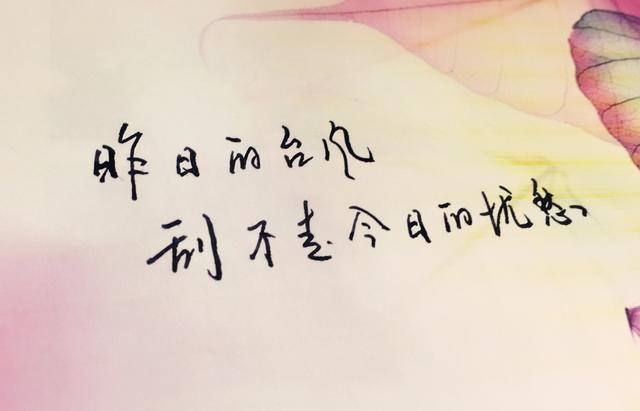 昨日的台风
刮不走今日的忧愁